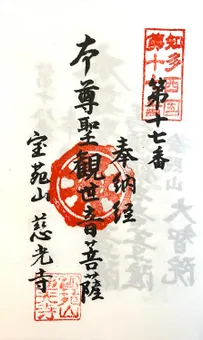 知多西国
第十七番
奉納経
本尊聖観世音菩薩
宝苑山 慈光寺
大智院